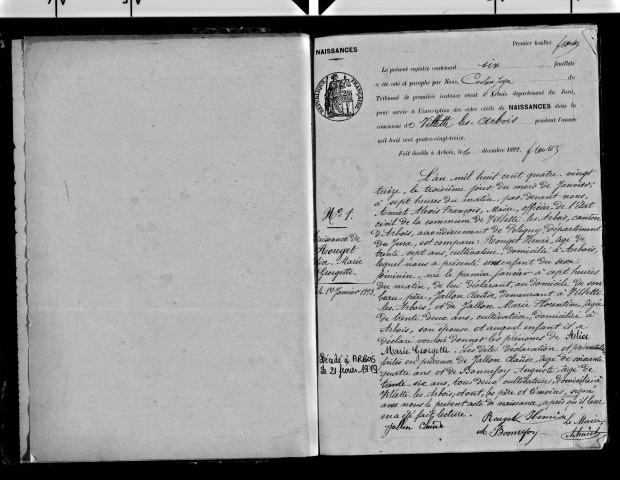 Premier feuillet
NAISSANCES
Le présent registre contenant six feuillets
a été coté et paraphé par Nous, du
Tribunal de première instance séant à Arbois département du Jura,
pour servir à l'inscription des actes civils de NAISSANCES dans la
commune de Villette les-Arbois pendant l'année
mil huit cent quatre-vingt-treize.
Fait double à Arbois, le décembre 1892.
RÉPUBLIQUE FRANÇAISE
N° 1.
Naissance de
Rouget
Alice Marie
Georgette
le 1er Janvier 1893.
Décédé à ARBOIS
le 21 février 1979
L'an mil huit cent quatre-vingt
treize, le troisième jour du mois de Janvier,
à sept heures du matin, par devant nous,
Amiet Alexis François, Maire, officier de l'Etat
civil de la commune de Villette les-Arbois, canton
d'Arbois, arrondissement de Poligny, Département
du Jura, est comparu Rouget Henri, âgé de
trente sept ans, cultivateur, domicilié à Arbois,
lequel nous a présenté un enfant du sexe
féminin, née le premier janvier à sept heures
du matin, de lui déclarant, au domicile de son
beau-père, Jallon Claude, demeurant à Villette
les-Arbois, et de Jallon Marie Florentine, âgée
de trente deux ans, cultivatrice, domiciliée à
Arbois, son épouse et auquel enfant il a
déclaré vouloir donner les prénoms de Alice
Marie Georgette. Les dites déclaration et présentation
faites en présence de Jallon Claude, âgé de soixante
quatre ans et de Bonnefoy Auguste, âgé de
trente six ans, tous deux cultivateurs, domiciliés à
Villette les-Arbois, et ont, les père et témoins, signé
avec nous le présent acte de naissance, après qu'il leur
en a été fait lecture.
Rouget Henri Le Maire,
Jallon Claude A Bonnefoy Amiet